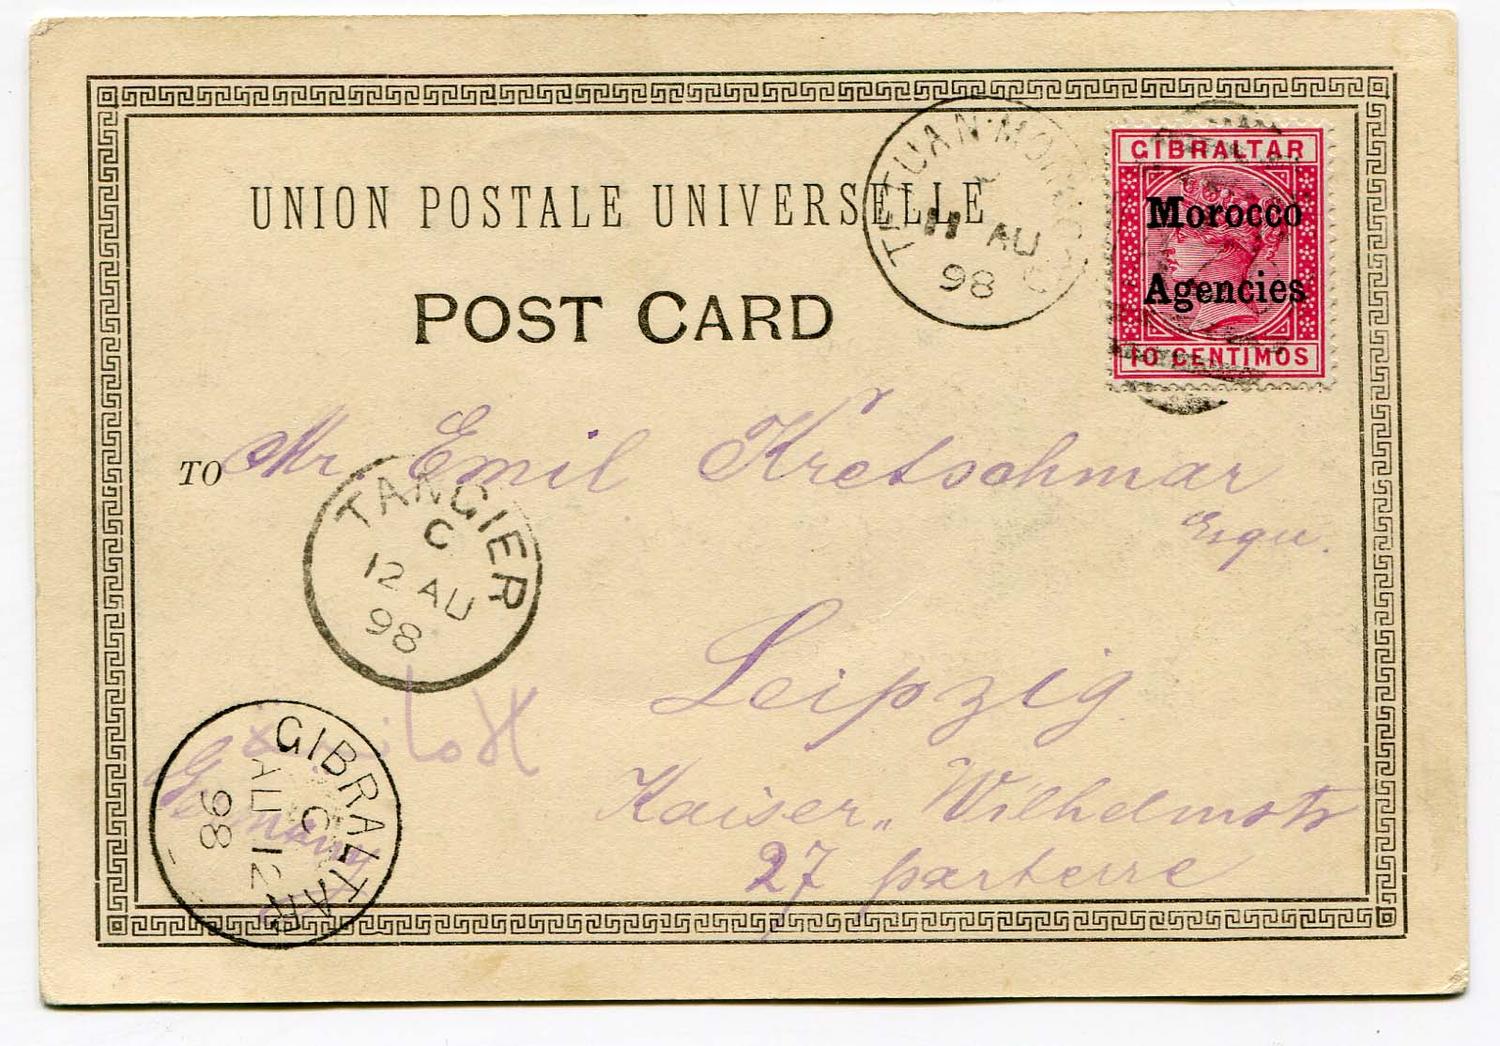 UNION POSTALE UNIVERSELLE
POST CARD
TETUAN · MOROCCO
11 AU
98
GIBRALTAR
Morocco
Agencies
10 CENTIMOS
TO Mr. Emil Kretschmar
Esqu.
TANGIER
C
12 AU
98
Leipzig
Kaiser „ Wilhelmstr
27 parterre
Germany
GIBRALTAR
C
AU 12
98